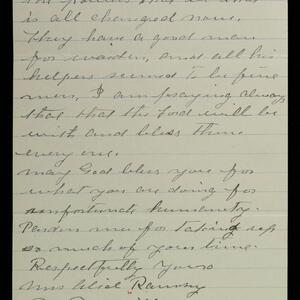 is all changed now.
They have a good man
for warden, and all his
helpers seemed to be fine
men, I am praying always
that that the Lord will be
with and bless them
every one.
May God bless you for
what you are doing for
unfortunate humanity.
Pardon me for taking up
so much of your time.
Respectfully yours
Mrs Ramsey